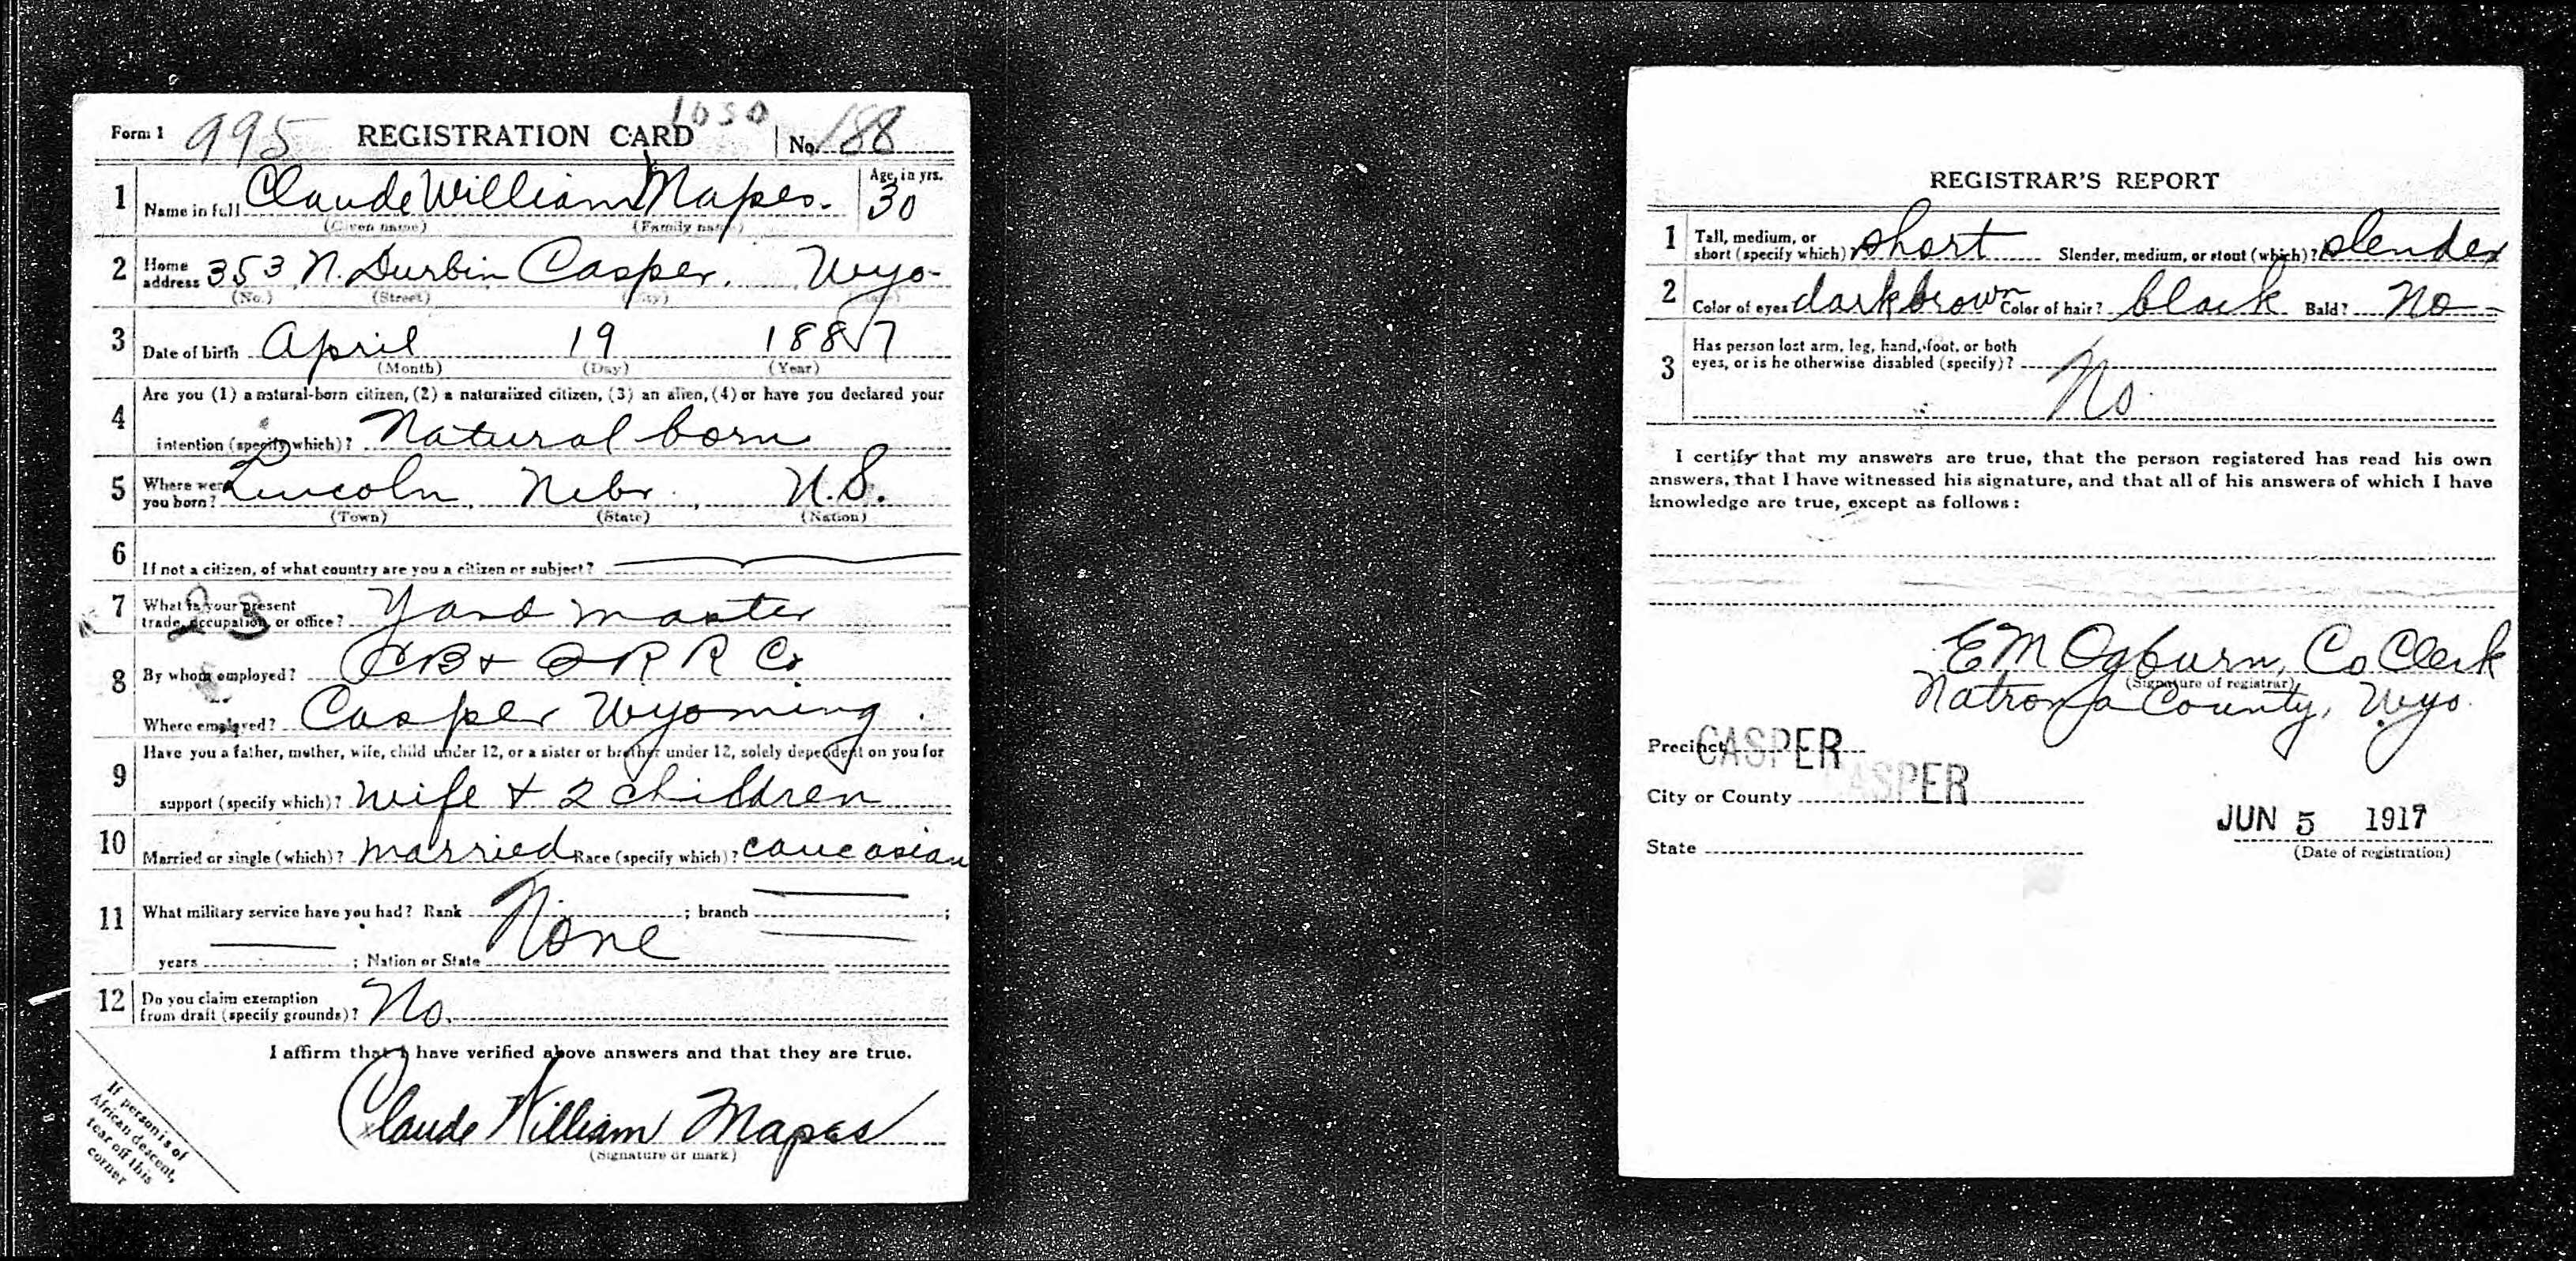 1050
Form 1 995 REGISTRATION CARD No. 188
1 Name in full Claude William Mapes. Age, in yrs. 30
(Given name) (Family name)
2 Home address 353 N. Durbin Casper, Wyo-
(No.) (Street) (City) (State)
3 Date of birth April 19 1887
(Month) (Day) (Year)
4 Are you (1) a natural-born citizen, (2) a naturalized citizen, (3) an alien, (4) or have you declared your
intention (specify which)? Natural born
5 Where were you born? Lincoln, Nebr., U.S.
(Town) (State) (Nation)
6 If not a citizen, of what country are you a citizen or subject? —
7 What is your present trade, occupation, or office? Yard master
23
8 By whom employed? CB + Q R R Co.
Where employed? Casper Wyoming.
9 Have you a father, mother, wife, child under 12, or a sister or brother under 12, solely dependent on you for
support (specify which)? wife + 2 children
10 Married or single (which)? married Race (specify which)? caucasian
11 What military service have you had? Rank None ; branch — ;
years — ; Nation or State —
12 Do you claim exemption from draft (specify grounds)? No.
I affirm that I have verified above answers and that they are true.
Claude William Mapes
(Signature or mark)
If person is of
African descent,
tear off this
corner
REGISTRAR'S REPORT
1 Tall, medium, or short (specify which)? short Slender, medium, or stout (which)? slender
2 Color of eyes dark brown Color of hair? black Bald? No
3 Has person lost arm, leg, hand, foot, or both
eyes, or is he otherwise disabled (specify)?
No.
I certify that my answers are true, that the person registered has read his own
answers, that I have witnessed his signature, and that all of his answers of which I have
knowledge are true, except as follows:
E M Ogburn, Co Clerk
(Signature of registrar)
Natrona County, Wyo.
Precinct CASPER
City or County CASPER
JUN 5 1917
State
(Date of registration)